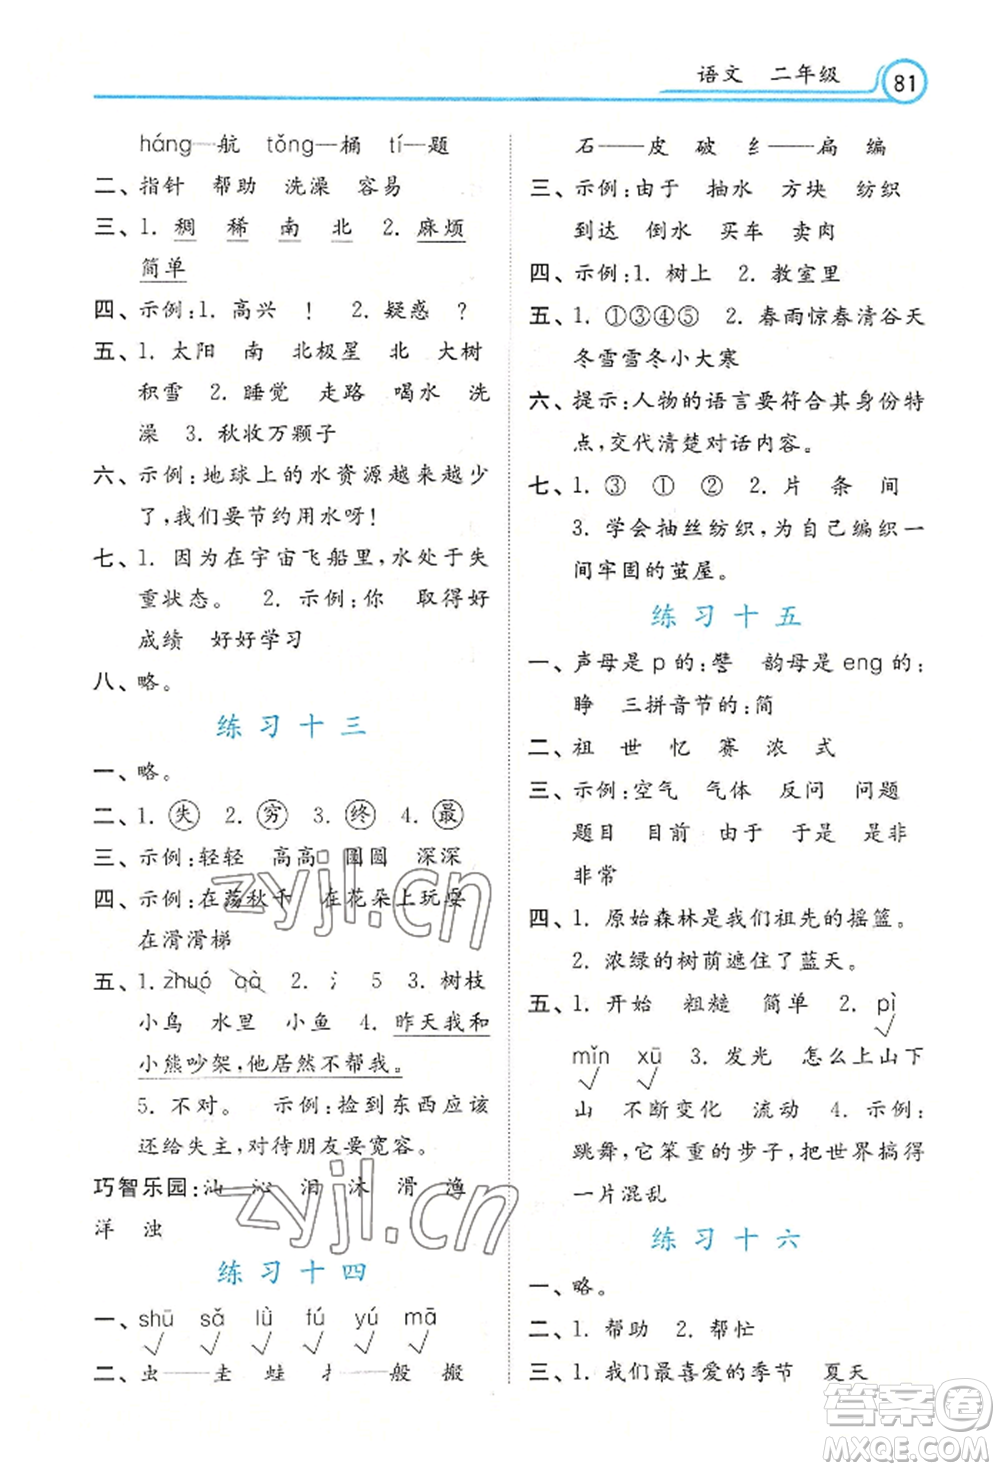 语文 二年级 81
háng—航 tǒng—桶 tí—题
二、指针 帮助 洗澡 容易
三、1. 稠 稀 南 北 2. 麻烦
简单
四、示例:1. 高兴 ! 2. 疑惑 ?
五、1. 太阳 南 北极星 北 大树
积雪 2. 睡觉 走路 喝水 洗
澡 3. 秋收万颗子
六、示例:地球上的水资源越来越少
了,我们要节约用水呀!
七、1. 因为在宇宙飞船里,水处于失
重状态。 2. 示例:你 取得好
成绩 好好学习
八、略。
练习十三
一、略。
二、1. 失 2. 穷 3. 终 4. 最
三、示例:轻轻 高高 圆圆 深深
四、示例:在荡秋千 在花朵上玩耍
在滑滑梯
五、1. zhuó qà 2. 氵 5 3. 树枝
小鸟 水里 小鱼 4. 昨天我和
小熊吵架,他居然不帮我。
5. 不对。 示例:捡到东西应该
还给失主,对待朋友要宽容。
巧智乐园:汕 沁 泪 沐 滑 渔
洋 浊
练习十四
一、shū sǎ lǜ fú yú mā
√ √ √ √ √ √
二、虫——圭 蛙 扌——般 搬
石——皮 破 纟——扁 编
三、示例:由于 抽水 方块 纺织
到达 倒水 买车 卖肉
四、示例:1. 树上 2. 教室里
五、1. ①③④⑤ 2. 春雨惊春清谷天
冬雪雪冬小大寒
六、提示:人物的语言要符合其身份特
点,交代清楚对话内容。
七、1. ③ ① ② 2. 片 条 间
3. 学会抽丝纺织,为自己编织一
间牢固的茧屋。
练习十五
一、声母是 p 的:譬 韵母是 eng 的:
睁 三拼音节的:简
二、祖 世 忆 赛 浓 式
三、示例:空气 气体 反问 问题
题目 目前 由于 于是 是非
非常
四、1. 原始森林是我们祖先的摇篮。
2. 浓绿的树荫遮住了蓝天。
五、1. 开始 粗糙 简单 2. pì
√
mǐn xū 3. 发光 怎么上山下
√ √
山 不断变化 流动 4. 示例:
跳舞,它笨重的步子,把世界搞得
一片混乱
练习十六
一、略。
二、1. 帮助 2. 帮忙
三、1. 我们最喜爱的季节 夏天
zyjl.cn
zyjl.cn
答案圈
MXQE.COM